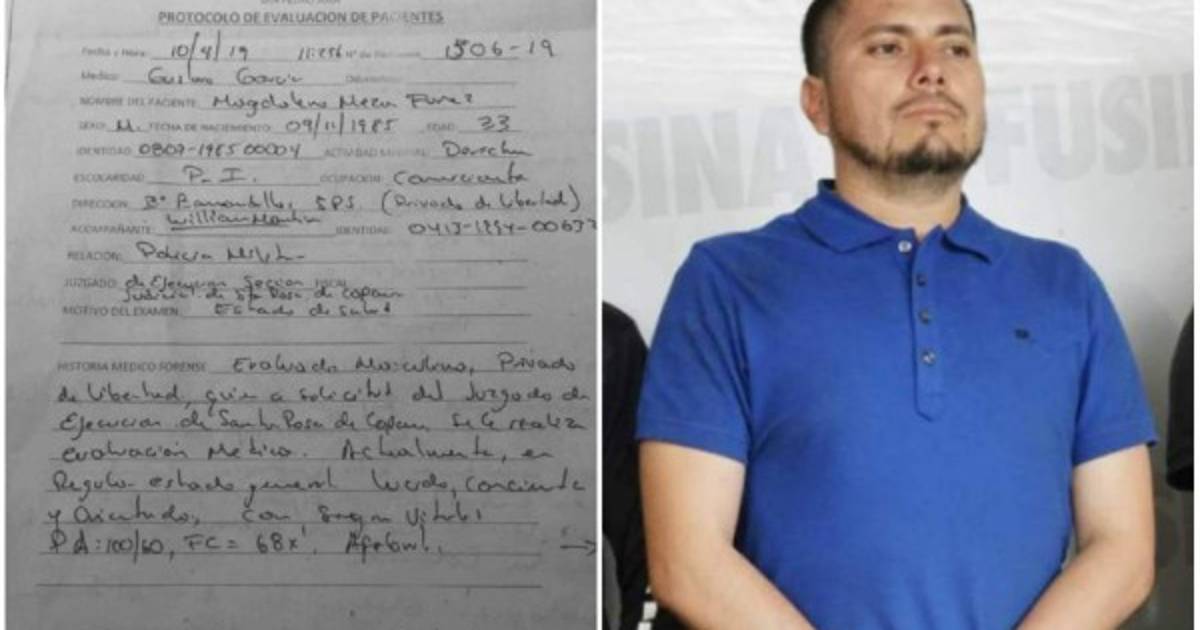 SAN PEDRO SULA
PROTOCOLO DE EVALUACION DE PACIENTES
Fecha y Hora: 10/4/19 11:25 Nº de 1506-19
Medico: Gustavo Garcia
NOMBRE DEL PACIENTE: Magdaleno Meza Funez
SEXO: M. FECHA DE NACIMIENTO: 09/11/1985 EDAD: 33
IDENTIDAD: 0807-1985 00004 ACTIVIDAD MANUAL: Derecha
ESCOLARIDAD: P. I. OCUPACION: Comerciante
DIRECCION: Bº SPS. (Privado de libertad)
ACOMPAÑANTE: William IDENTIDAD: 0413-1994-00633
RELACION: Policia
JUZGADO: de Ejecucion Seccion FISCAL
Judicial de Sta Rosa de Copan
MOTIVO DEL EXAMEN: Estado de salud
HISTORIA MEDICO FORENSE Evaluado Masculino, Privado
de libertad, quien a solicitud del Juzgado de
Ejecucion de Santa Rosa de Copan se le realiza
evaluacion Medica. Actualmente, en
Regular estado general lucido, conciente
y Orientado, con Signos Vitales
PA: 100/60, FC = 68x'. Afebril. →
SINA FUSI